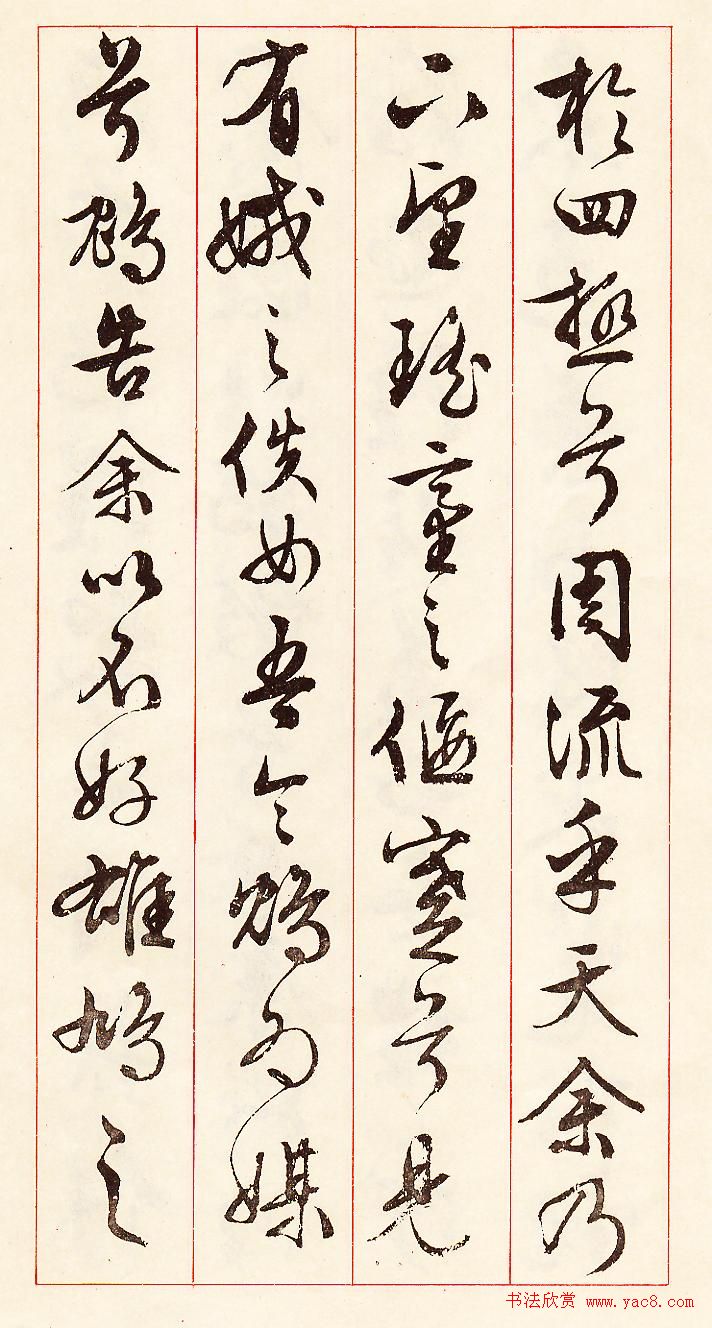 於四極兮周流乎天余乃
下望瑤臺之偃蹇兮見
有娀之佚女吾令鴆為媒
兮鴆告余以不好雄鳩之
书法欣赏 www.yac8.com